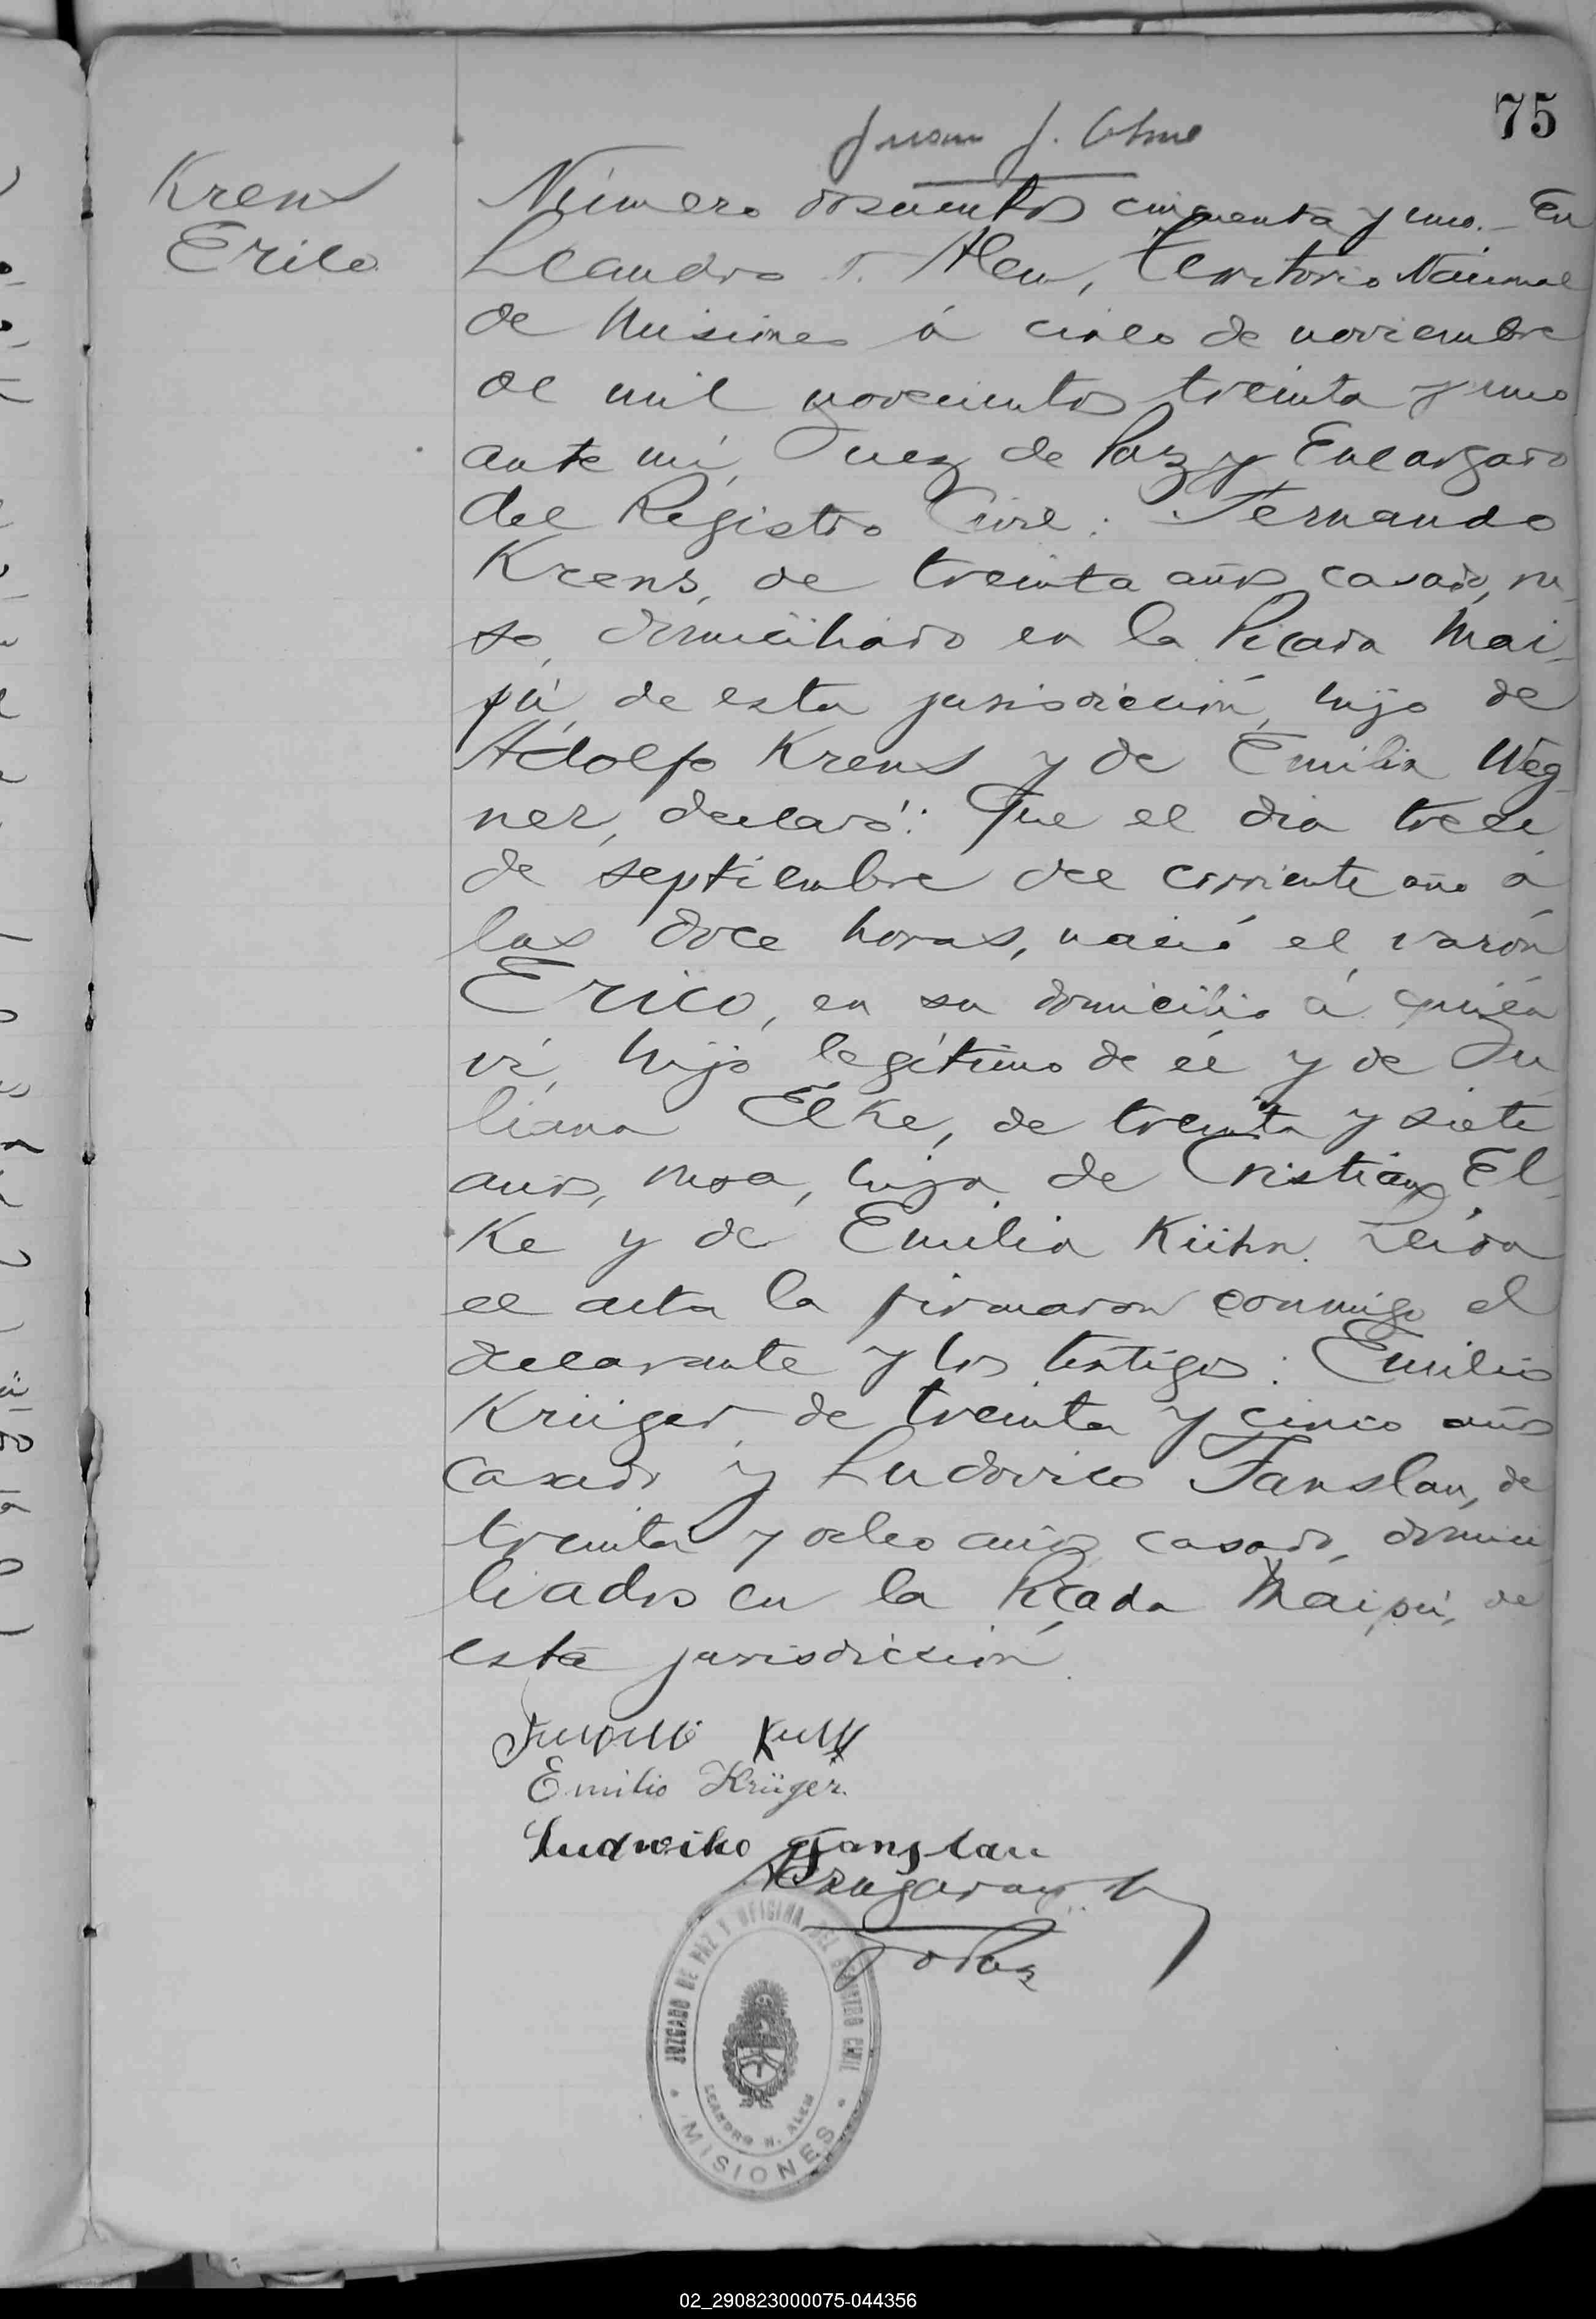 75
Juan J.
Krens
Erico
Número doscientos cincuenta y uno.- En
Leandro N. Alem, Territorio Nacional
de Misiones á cinco de noviembre
de mil novecientos treinta y uno
ante mí, Juez de Paz y Encargado
del Registro Civil: Fernando
Krens, de treinta años casado, ru-
so, domiciliado en la Picada Mai-
pú, de esta jurisdicción, hijo de
Adolfo Krens y de Emilia Weg-
ner, declaró: Que el dia trece
de septiembre del corriente año á
las doce horas, nació el varón
Erico, en su domicilio á quién
ví, hijo legítimo de él y de Ju-
liana Elke, de treinta y siete
años, rusa, hija de Cristian El-
ke y de Emilia Kühn. Leida
el acta la firmaron conmigo el
declarante y los testigos: Emilio
Krüger, de treinta y cinco años
casado y Ludovico Fanslau, de
treinta y ocho años casado, domici-
liados en la Picada Maipú, de
esta jurisdicción.
Emilio Krüger.
Ludwiko Fanslau
J de Paz
JUZGADO DE PAZ Y OFICINA DEL REGISTRO CIVIL
LEANDRO N. ALEM
MISIONES
02_290823000075-044356